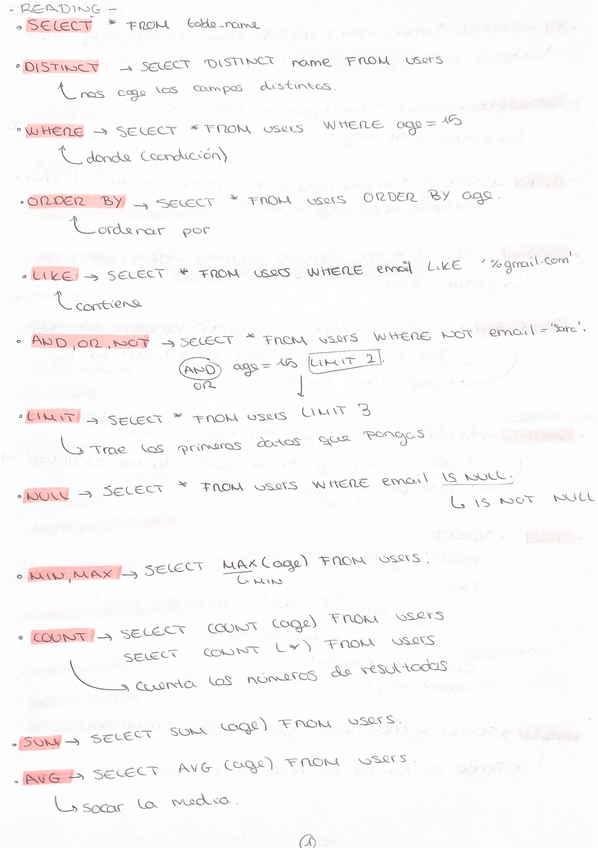 - READING -
• SELECT * FROM table_name
• DISTINCT → SELECT DISTINCT name FROM users
nos coge los campos distintos.
• WHERE → SELECT * FROM users WHERE age = 15
donde (condición)
• ORDER BY → SELECT * FROM users ORDER BY age.
ordenar por
• LIKE → SELECT * FROM users WHERE email LIKE '%gmail.com'
contiene
• AND, OR, NOT → SELECT * FROM users WHERE NOT email = 'sara'.
AND age = 15 LIMIT 2.
OR
• LIMIT → SELECT * FROM users LIMIT 3
Trae los primeros datos que pongas.
• NULL → SELECT * FROM users WHERE email IS NULL.
IS NOT NULL
• MIN, MAX → SELECT MAX (age) FROM users.
MIN
• COUNT → SELECT COUNT (age) FROM users
SELECT COUNT (*) FROM users
cuenta los números de resultados
• SUM → SELECT SUM (age) FROM users.
• AVG → SELECT AVG (age) FROM users.
sacar la media.
1